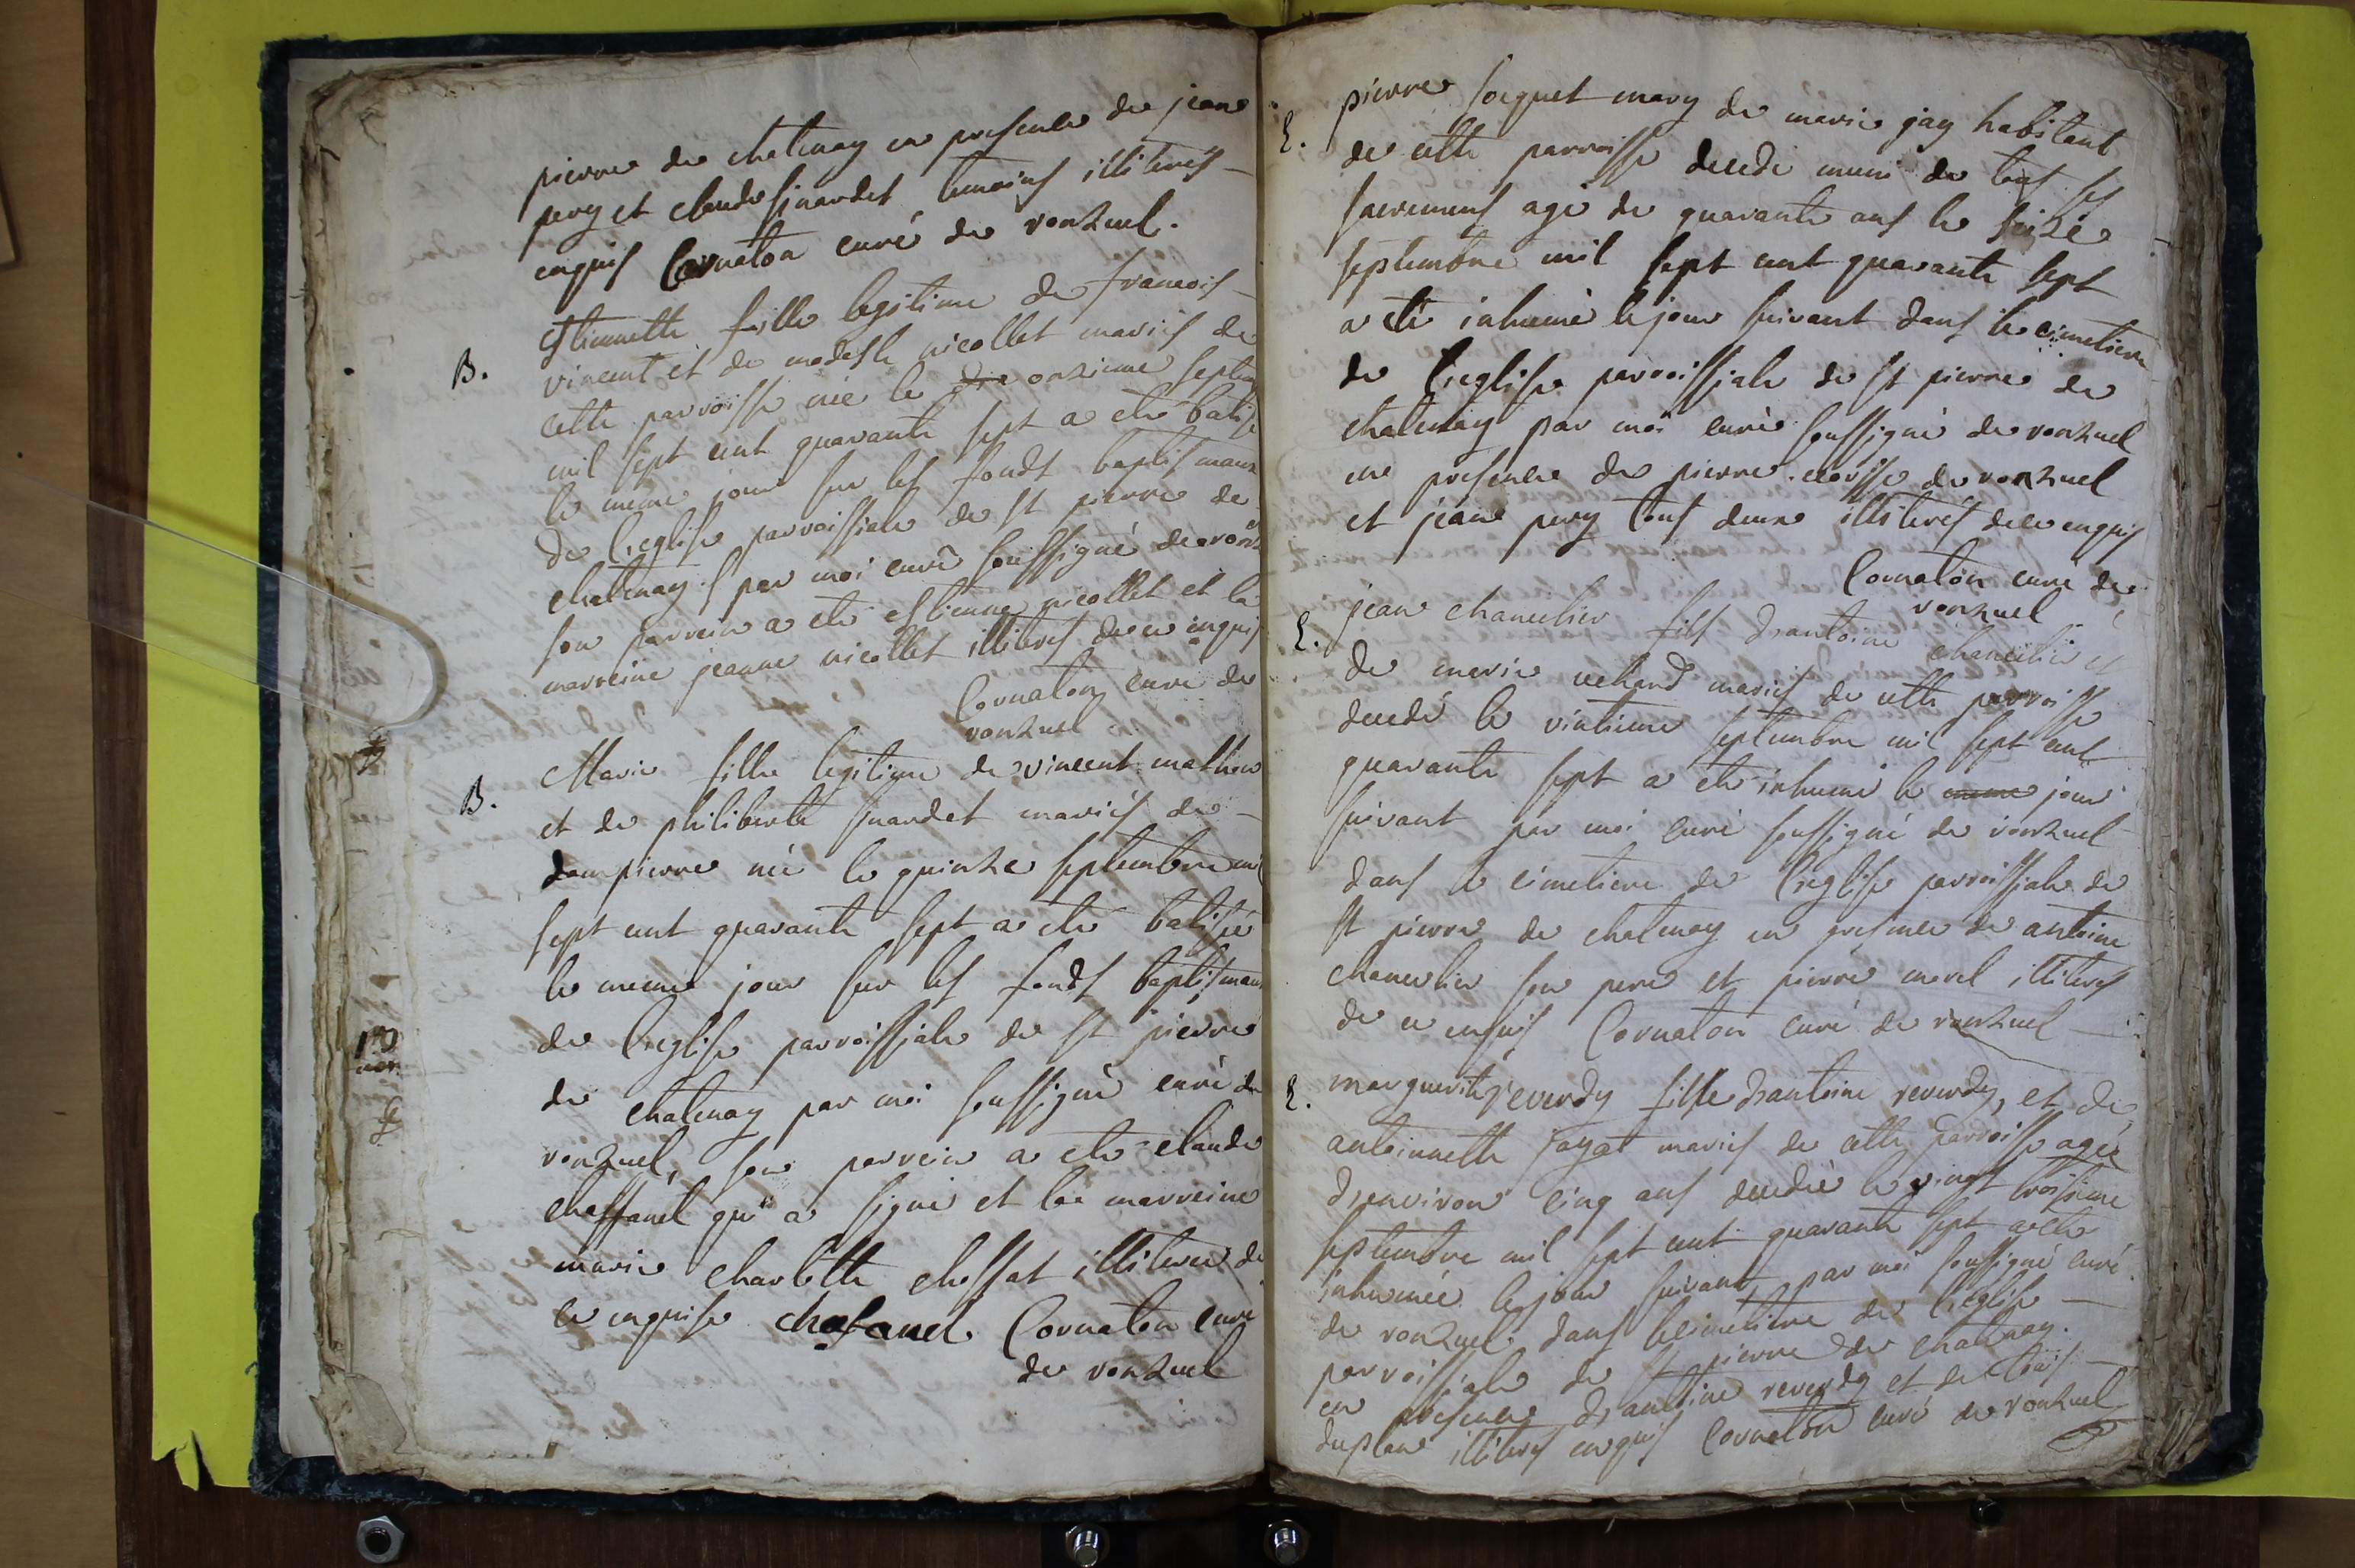 pierre de chatenay en presence de jean
pery et claude sinardet temoins illiterés
enquis Cornaton curé de ronzuel.
B.
Estiennette fille legitime de francois
vincent et de modeste nicollet mariés de
cette parroisse née le onzieme septem
mil sept cent quarante sept a eté batisé
le meme jour sur les fonds baptismaux
de l'eglise parroissiale de st pierre de
chatenay par moi curé soussigné de ronz
son parrein a eté estienne nicollet et la
marreine jeanne nicollet illiterés de ce enquis
Cornaton curé de
ronzuel
B.
Marie fille legitime de vincent mathieu
et de philiberte suardet mariés de
dompierre née le quinze septembre mil
sept cent quarante sept a eté batisée
le meme jour sur les fonds baptismaux
de l'eglise parroissiale de st pierre
de chatenay par moi soussigné curé de
ronzuel, son parrein a eté claude
chaffanel qui a signé et la marreine
marie charlotte chossat illiterée de
ce enquise chafanel Cornaton curé
de ronzuel
E.
pierre soquet mary de marie jay habitant
de cette parroisse decedé muni de tous ses
sacremens agé de quarante ans le seize
septembre mil sept cent quarante sept
a eté inhumé le jour suivant dans le cimetiere
de l'eglise parroissiale de st pierre de
chatenay par moi curé soussigné de ronzuel
en presence de pierre de ronzuel
et jean pery tous deux illiterés de ce enquis
Cornaton curé de
ronzuel
E.
jean chancelier fils d'antoine chancelier et
de marie mariés de cette parroisse
decedé le vintieme septembre mil sept cent
quarante sept a eté inhumé le meme jour
suivant par moi curé soussigné de ronzuel
dans le cimetiere de l'eglise parroissiale de
st pierre de chatenay en presence de antoine
chancelier son pere et pierre morel illiterés
de ce enquis Cornaton curé de ronzuel
E.
marguerite reverdy fille d'antoine reverdy, et de
antoinette fayat mariés de cette parroisse agée
d'environ cinq ans decedée le vingt troisieme
septembre mil sept cent quarante sept a eté
inhumée le jour suivant par moi soussigné curé
de ronzuel dans le cimetiere de l'eglise
parroissiale de st pierre de chatenay.
en presence d'antoine reverdy et de
duplan illiterés enquis Cornaton curé de ronzuel